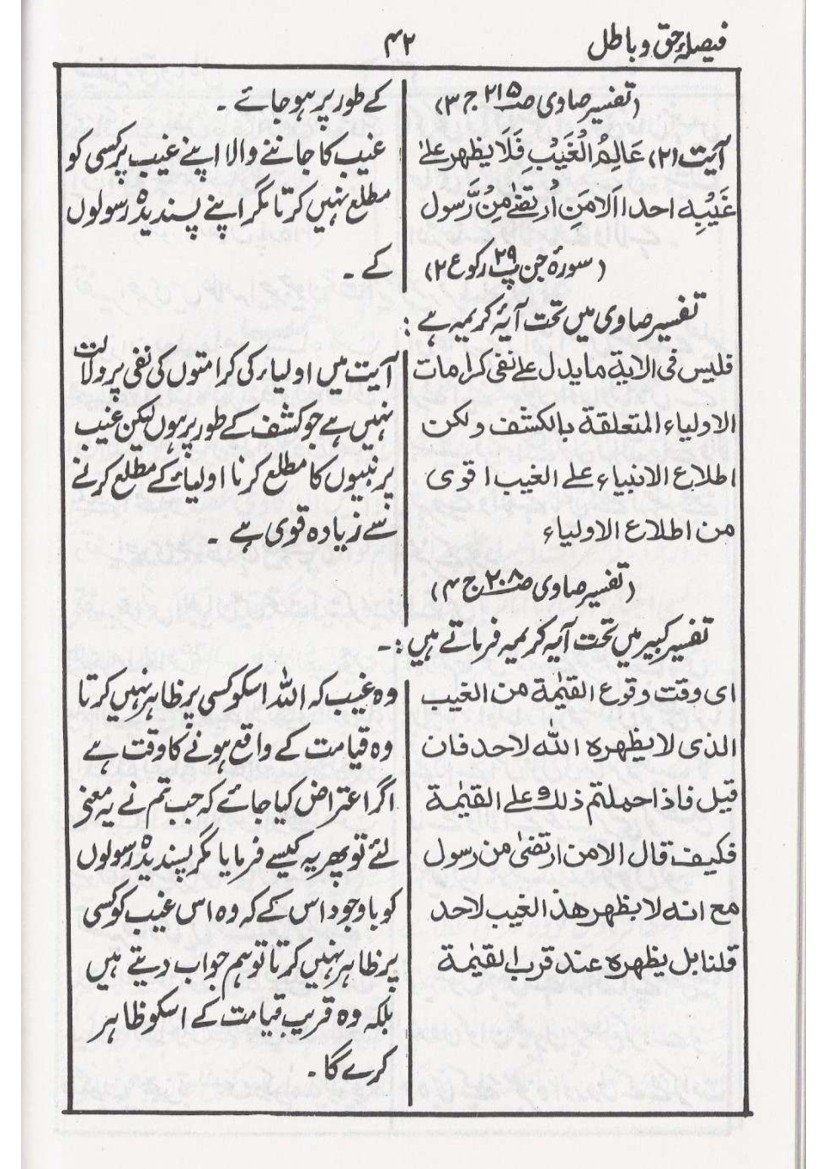 فیصلۂ حق و باطل
۴۲
(تفسیر صاوی صـ۲۱۵ ج ۳)
آیت (۲) عَالِمُ الْغَیْبِ فَلَا یظھر علیٰ
غَیْبِہٖ احدا الا من ارتضٰی مِنْ رَّسول
(سورۂ جن پ۲۹ رکوع ۲)
کے طور پر ہو جائے ۔
غیب کا جاننے والا اپنے غیب پر کسی کو
مطلع نہیں کرتا مگر اپنے پسندیدہ رسولوں
کے ۔
تفسیر صاوی میں تحت آیۂ کریمہ ہے :
فلیس فی الایة ما یدل علے نفی کرامات
الاولیاء المتعلقة بالکشف ولکن
اطلاع الانبیاء علے الغیب اقوی
من اطلاع الاولیاء
(تفسیر صاوی صـ۲۰۸ ج ۴)
آیت میں اولیاء کی کرامتوں کی نفی پر دلالت
نہیں ہے جو کشف کے طور پر ہوں لیکن غیب
پر نبیوں کا مطلع کرنا اولیاء کے مطلع کرنے
سے زیادہ قوی ہے ۔
تفسیر کبیر میں تحت آیہ کریمیہ فرماتے ہیں :۔
ای وقت وقوع القیٰمة من الغیب
الذی لا یظھرہ اللہ لاحد فان
قیل فاذا حملتم ذلک علے القیٰمة
فکیف قال الا من ارتضیٰ من رسول
مع انہ لا یظھر ھذ الغیب لاحد
قلنا بل یظھرہ عند قرب القیٰمة
وہ غیب کہ اللہ اسکو کسی پر ظاہر نہیں کرتا
وہ قیامت کے واقع ہونے کا وقت ہے
اگر اعتراض کیا جائے کہ جب تم نے یہ معنی
لئے تو پھر یہ کیسے فرمایا مگر پسندیدہ رسولوں
کو باوجود اس کے کہ وہ اس غیب کو کسی
پر ظاہر نہیں کرتا تو ہم جواب دیتے ہیں
بلکہ وہ قریب قیامت کے اسکو ظاہر
کرے گا ۔